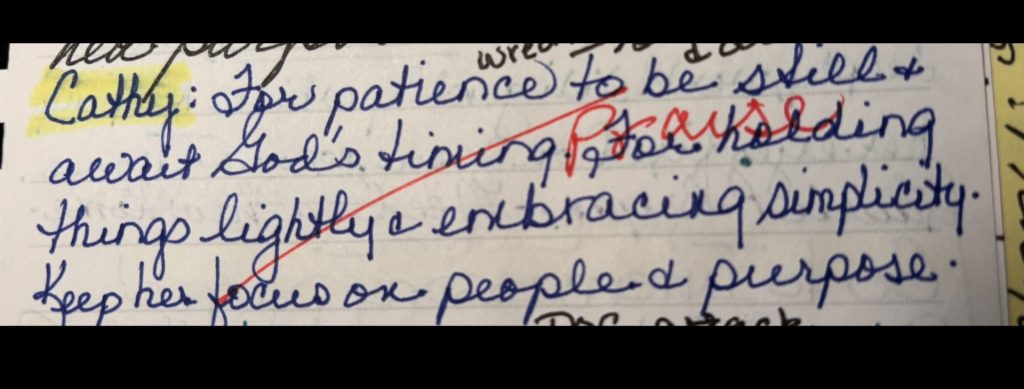 new purpo
Cathy: For patience to be still &
await God's timing, for holding
Praise
things lightly & embracing simplicity.
Keep her focus on people & purpose.
attack